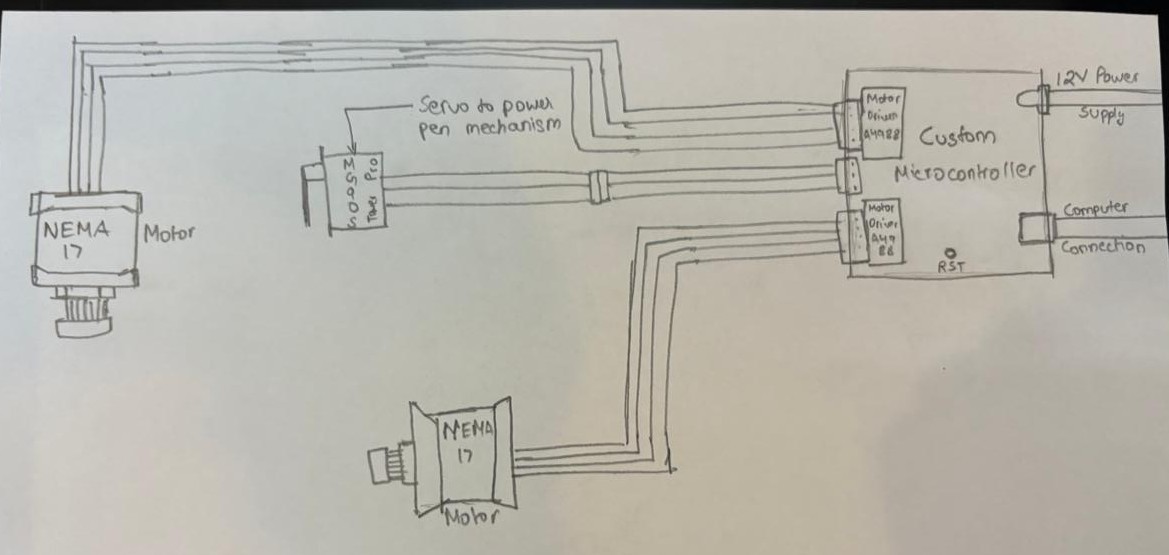 Servo to power
pen mechanism
NEMA
17
Motor
Pro
Tower
Motor
Driver
A4988
Custom
Microcontroller
Motor
Driver
A49
88
RST
12V Power
Supply
Computer
Connection
NEMA
17
Motor